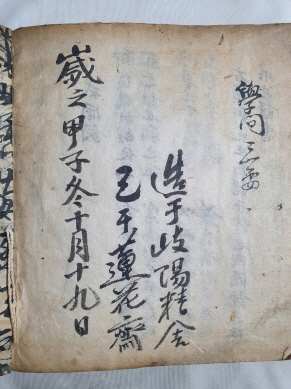 學问三要
造于岐陽精舍
己于蓮花齋
歲之甲子冬十月十九日